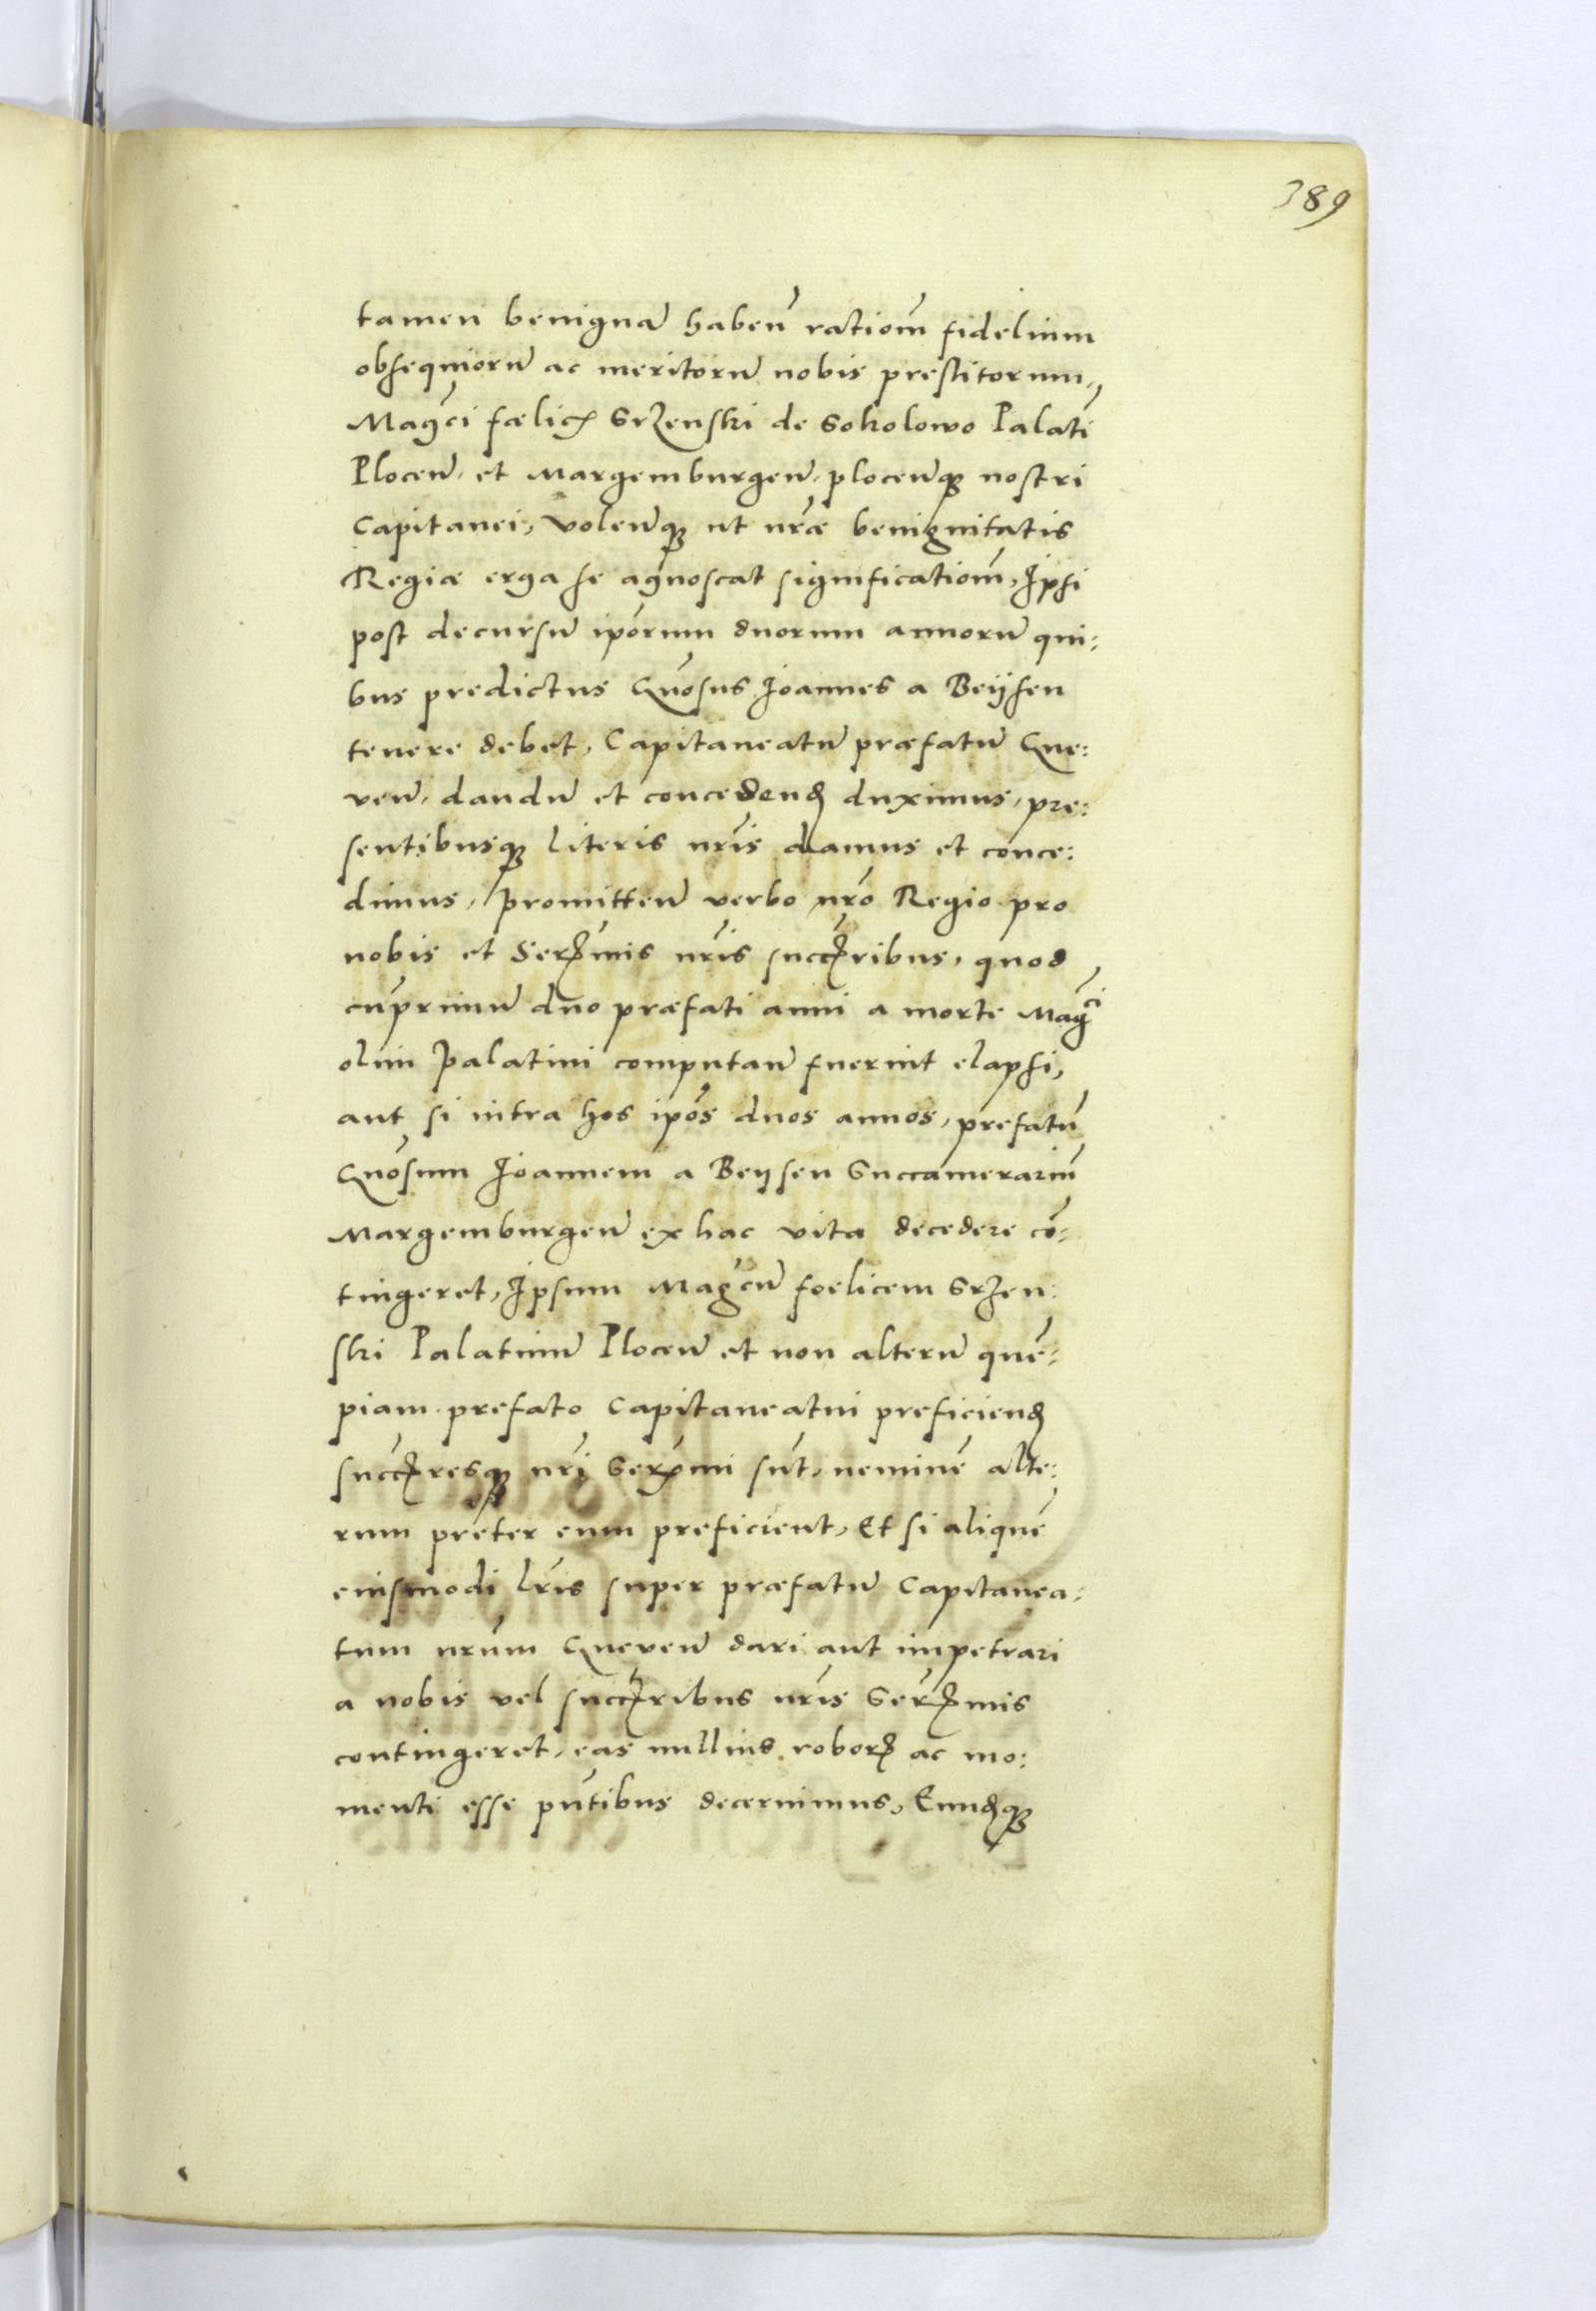 389
tamen benignã habeñ ratiom̃ fidelium
obsequiorũ ac meritorũ nobis prestitorum,
Mag̃ci fælicꝭ Srzenski de Sokolowo Palatĩ
Ploceñ, et Margemburgeñ, ploceñqꝫ nostri
Capitanei, Voleñqꝫ ut nr̃æ benignitatis
Regiæ erga se agnoscat significatiom̃, Ipsi
post decursũ ip̃orum duorum annorũ qui:
bus predictus Gñosus Joannes a Beÿsen
tenere debet, Capitaneatũ præfatũ Gne:
veñ, dandũ et concedendꝫ duximus, pre:
sentibusqꝫ literis nr̃is damus et conce:
dimus, promitteñ verbo nr̃o Regio pro
nobis et Serꝫmis nr̃is succꝫribus, quod
cũprimũ duo præfati anni a morte Mag̃ci
olim Palatini computañ fuerint elapsi,
aut si intra hos ip̃os duos annos, prefatũ
Gñosum Joannem a Beÿsen Succamerariũ
Margemburgeñ ex hac vita decedere cõ:
tingeret, Ipsum Mag̃cũ foelicem Srzen:
ski Palatinũ Ploceñ et non alterũ quẽ:
piam prefato Capitaneatui preficiendꝫ
succꝫresqꝫ nr̃i Serꝫmi sũt, neminẽ alte:
rum preter eum preficient, Et si aliquẽ
eiusmodi lr̃is super præfatũ Capitanea:
tum nr̃um Gneveñ dari aut impetrari
a nobis vel succꝫribus nr̃is Serꝫmis
contingeret, eas nullius roborꝭ ac mo:
menti esse pñtibus decernimus, Eundꝫqꝫ